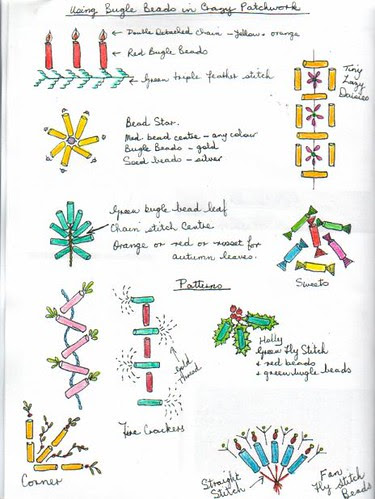 Using Bugle Beads in Crazy Patchwork
Double Detached chain - Yellow + orange
Red Bugle Beads
Green triple feather stitch
Tiny
Lazy
Daisies
Bead Star.
Med bead centre - any colour
Bugle Beads - gold
Seed beads - silver
Green bugle bead leaf
Chain stitch Centre
Orange or red or russet for
autumn leaves.
Sweets
Patterns
Gold
Thread
Holly
Green Fly Stitch
+ red beads
+ green bugle beads
Fire Crackers
Corner
Straight
Stitch
Fan
Fly Stitch
Beads